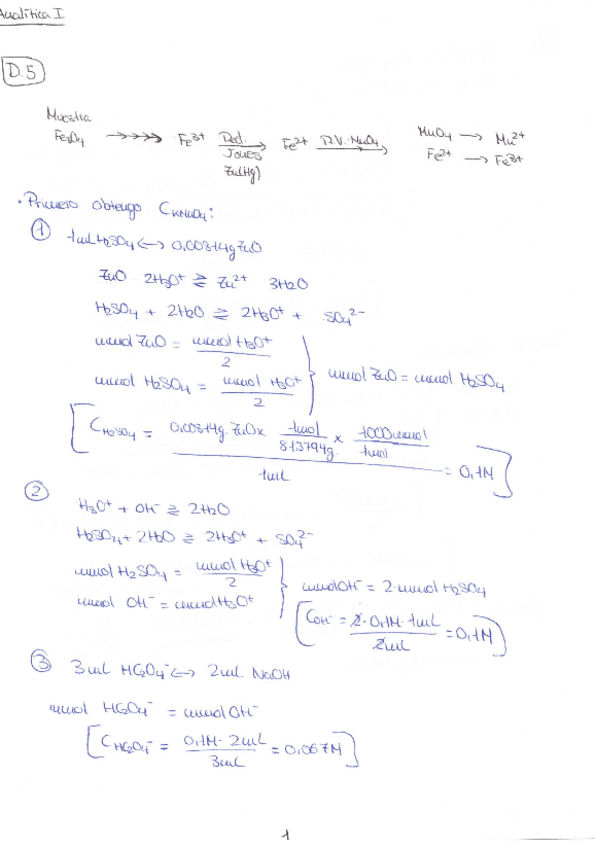 Analítica I
D.5
Muestra
Fe3O4 →→→→ Fe3+ Red. Jones Zn(Hg) → Fe2+ P.V. MnO4 → MnO4 → Mn2+
Fe2+ → Fe3+
· Primero obtengo CKMnO4:
① 1mL H2SO4 ↔ 0,00814g ZnO
ZnO 2H3O+ ⇌ Zn2+ 3H2O
H2SO4 + 2H2O ⇌ 2H3O+ + SO4 2-
mmol ZnO = mmol H3O+ / 2
mmol H2SO4 = mmol H3O+ / 2 } mmol ZnO = mmol H2SO4
[ CH2SO4 = 0,00814g ZnO x 1mol / 81,3794g x 1000mmol / 1mol / 1mL = 0,1M ]
② H3O+ + OH- ⇌ 2H2O
H2SO4 + 2H2O ⇌ 2H3O+ + SO4 2-
mmol H2SO4 = mmol H3O+ / 2
mmol OH- = mmol H3O+ } mmol OH- = 2·mmol H2SO4
[ COH- = 2·0,1M·1mL / 2mL = 0,1M ]
③ 3mL HC2O4- ↔ 2mL NaOH
mmol HC2O4- = mmol OH-
[ CHC2O4- = 0,1M·2mL / 3mL = 0,067M ]
1